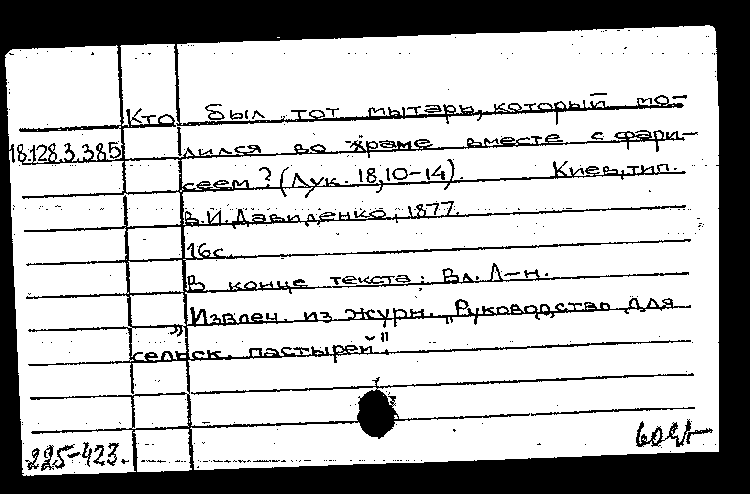 Кто был тот мытарь, который мо-
18.128.3.385 лился во храме вместе с фари-
сеем? (Лук. 18,10-14). Киев, тип.
В.И. Давиденко, 1877.
16с.
В конце текста: Вл. Л-н.
Извлеч. из журн. „Руководство для
сельск. пастырей".
225-423.